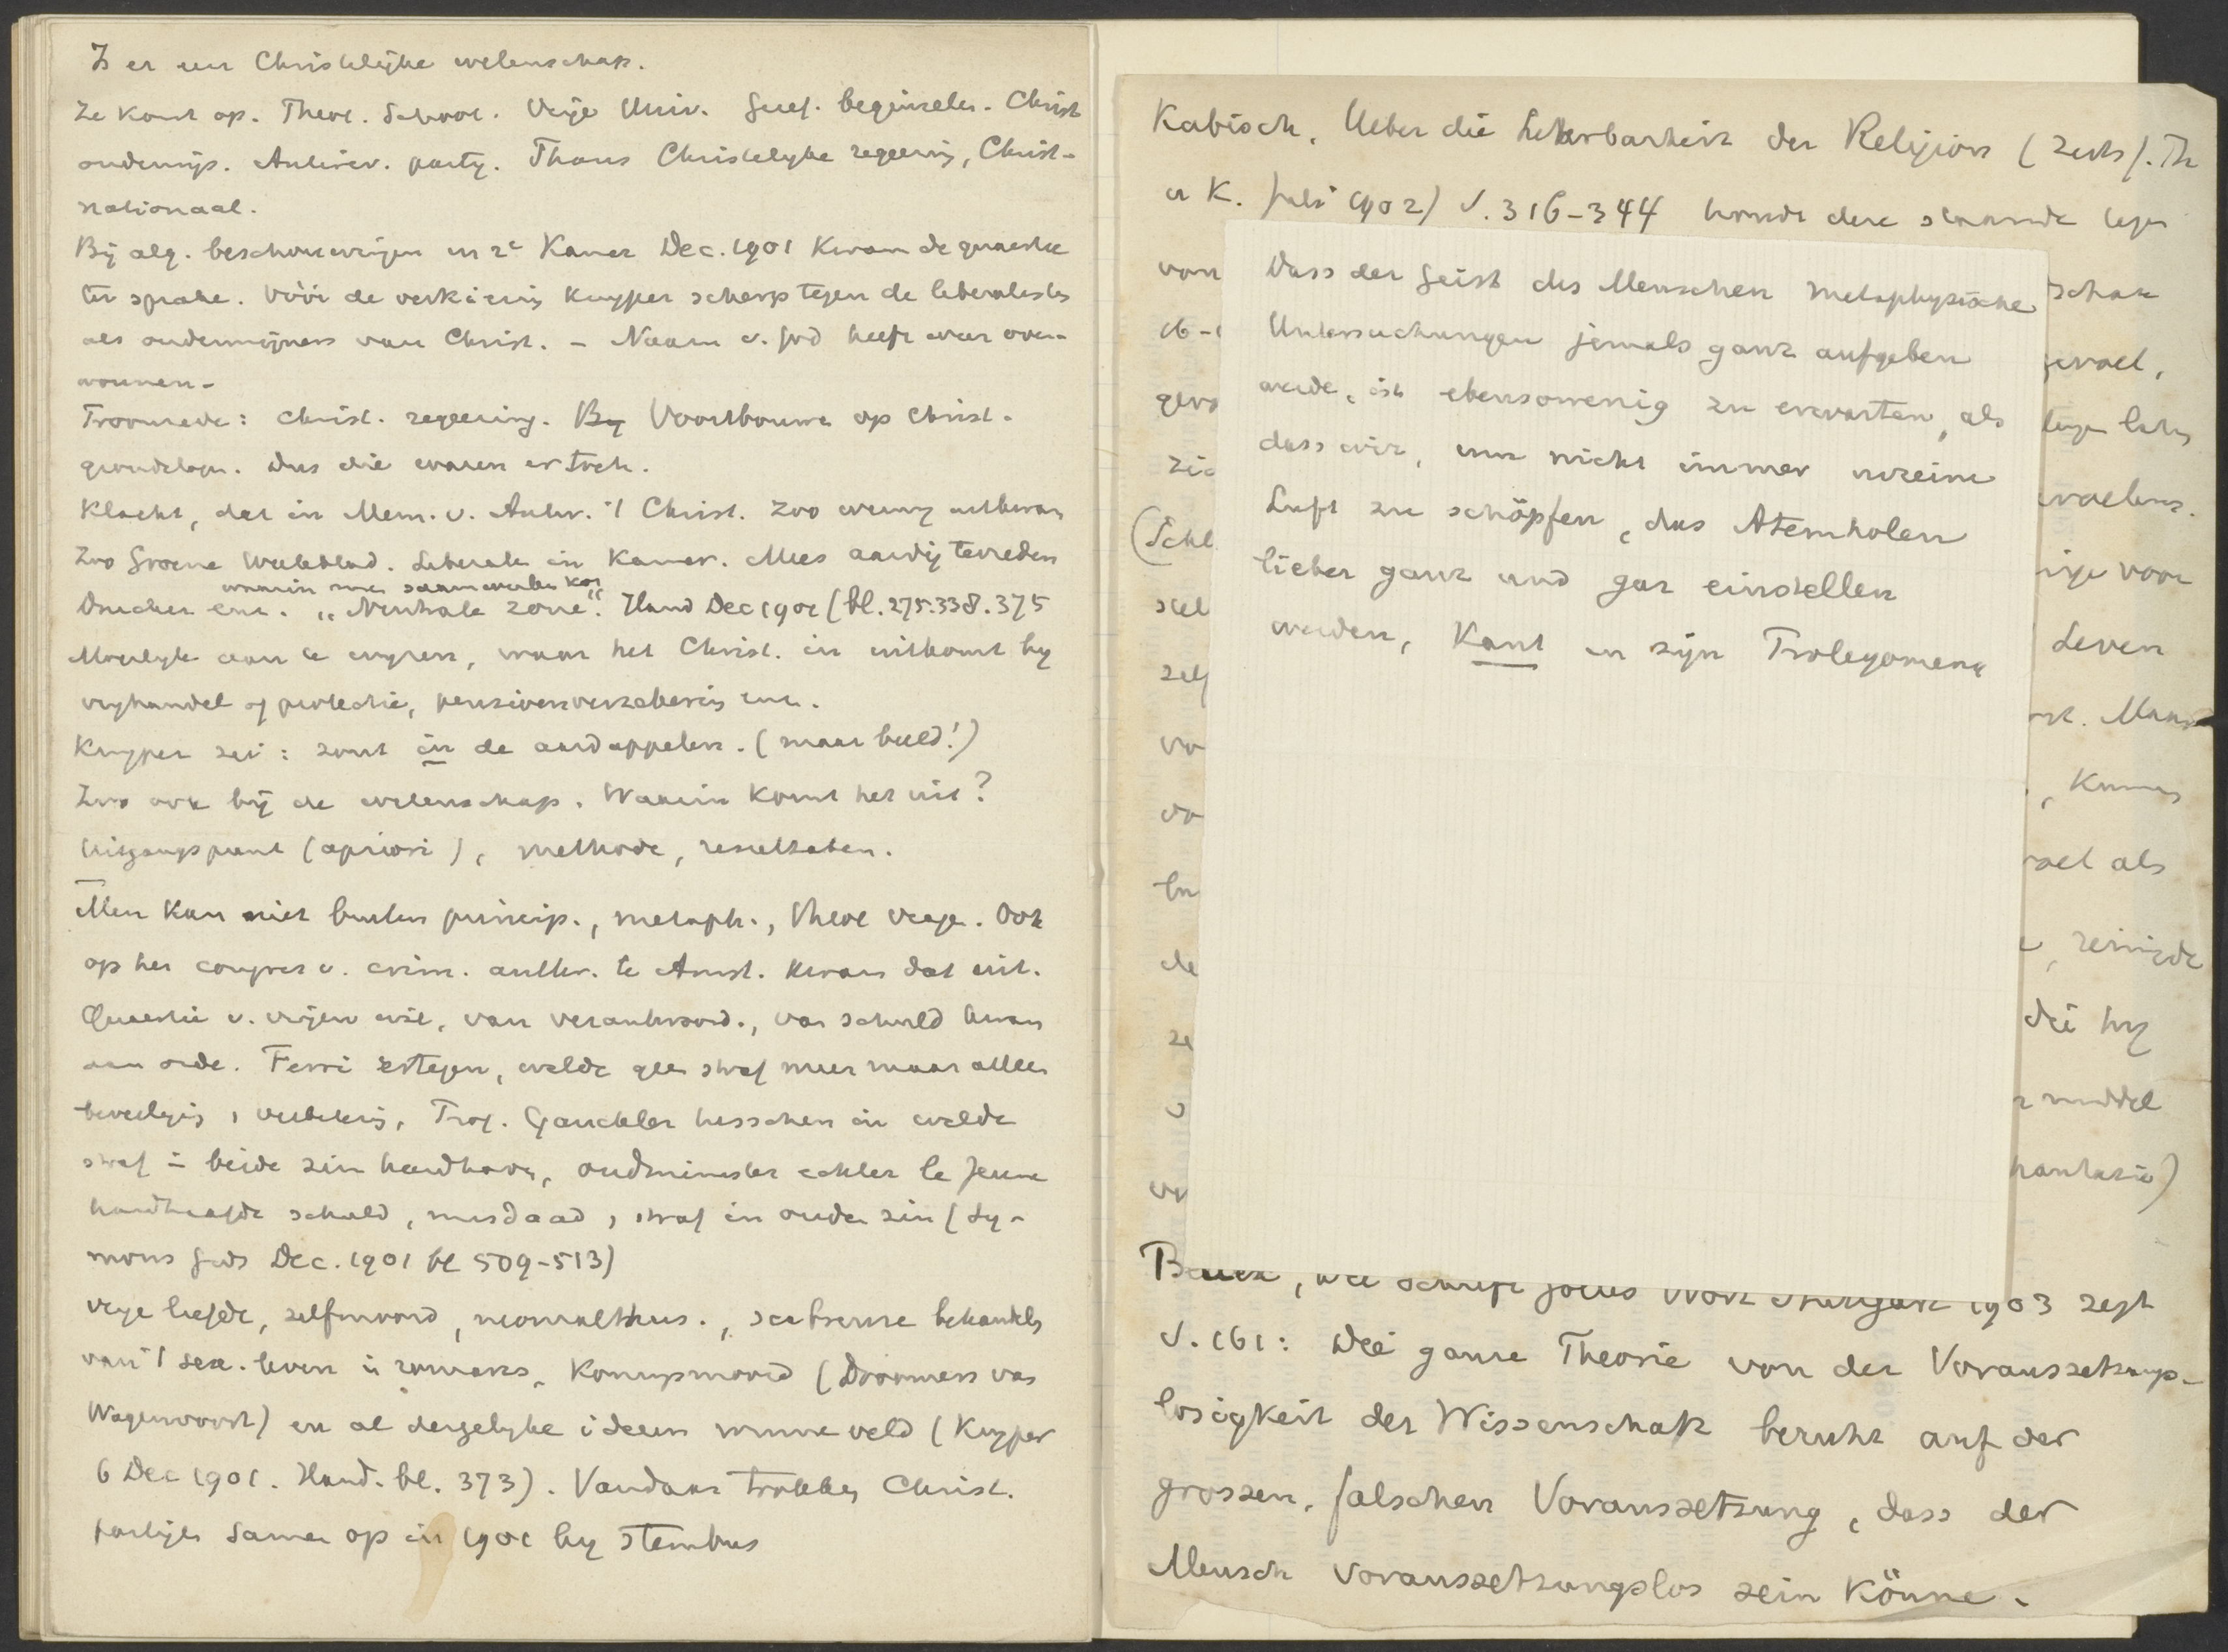 Is er een Christelijke wetenschap.
Ze komt op. Theol. School. Vrije Univ. Geref. beginselen. Christ
onderwijs. Antirev. party. Thans Christelyke regeering, Christ-
nationaal.
Bij alg. beschouwingen in 2e Kamer Dec. 1901 kwam de quaestie
ter sprake. Vóór de verkiezing Kuyper scherp tegen de liberalisten
als ondermijners van Christ. - Naam v. God heeft weer over-
wonnen -
Troonrede: Christ. regeering. By Voortbouwen op Christ.
grondslagen. Dus die waren er toch.
Klacht, dat in Mem. v. Antw. 't Christ. zoo weinig uitkwam
Zoo Groene Weekblad. Liberale in Kamer. Mees aardig tevreden
waarin men samenwerken kon
Drucker enz. "Neutrale zone". Hand Dec 1901 (bl. 275.338.375
Moeilyk aan te wyzen, waar het Christ. in uitkomt by
vryhandel of protectie, pensioenverzekering enz.
Kuyper zei: zout in de aardappelen. (maar beeld!)
Zoo ook bij de wetenschap. Waarin komt het uit?
Uitgangspunt (apriori), methode, resultaten.
Men kan niet buiten princip., metaph., theol vrage. Ook
op het congres v. crim. anthr. te Amst. kwam dat uit.
Quaestie v. vrijen wil, van verantwoord., van schuld kwam
aan orde. Ferri ertegen, wilde geen straf meer maar alleen
beveiliging, verbetering, Prof. Gauckler tusschen in wilde
straf in beide zin handhaven, oudminister echter le Jeune
handhaafde schuld, misdaad, straf in ouden zin (Sy-
mons Gids Dec. 1901 bl 509-513)
Vrye liefde, zelfmoord, neomalthus., scabreuse behandeling
van 't sex. leven in romans, Koningsmoord (Droomers van
Wagenvoort) en al dergelyke ideeen winnen veld (Kuyper
6 Dec 1901. Hand. bl. 373). Vandaar trokken Christ.
partijen samen op in 1901 by stembus
Kabisch. Ueber die Lehrbarkeit der Religion (Zeits f. Th
u K. Juli 1902) S. 316-344 komt deze staande tegen
von
schap
gevoel,
gevo
zic
(Schl
Leven
stel
zelf
vo
vo
, Kennis
als
de
, reinigde
die hy
middel
Dass der Geist des Menschen metaphysische
Untersuchungen jemals ganz aufgeben
werde, ist ebensowenig zu erwarten, als
dass wir, um nicht immer unreine
Luft zu schöpfen, das Atemholen
lieber ganz und gar einstellen
werden, Kant in zijn Prolegomena
1903 zegt
S. 161: Die ganze Theorie von der Voraussetzungs-
losigkeit der Wissenschaft beruht auf der
grossen, falschen Voraussetzung, dass der
Mensch voraussetzungslos sein könne.